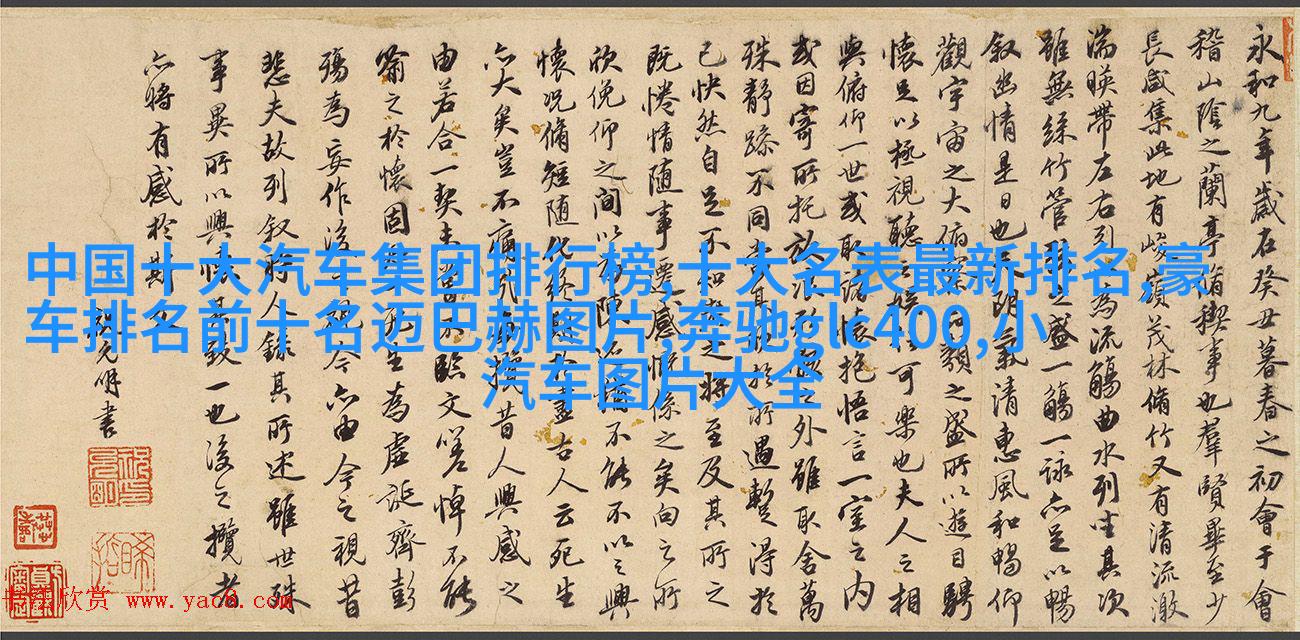 中国十大汽车集团排行榜,十大名表最新排名,豪
车排名前十名迈巴赫图片,奔驰glc400,小
汽车图片大全
永和九年歲在癸丑暮春之初會于會
稽山陰之蘭亭脩稧事也羣賢畢至少
長咸集此地有峻嶺茂林脩竹又有清流激
湍暎帶左右為流觴曲水列坐其次
雖無絲竹管之盛一觴一詠亦足以暢
叙幽情是日也天朗氣清惠風和暢仰
觀宇宙之大俯類之盛所以遊目騁
懷足以極視聽可樂也夫人之相
與俯仰一世或取諸懷抱悟言一室之内
或因寄所托放浪形之外雖取舍萬
殊静躁不同當其於所遇蹔得於
己快然自足不知之將至及其所之
既惓情随事遷感係之矣向之所
欣俛仰之間以猶不能不以之興
懷况脩短随化終期於盡古人云死生
亦大矣豈不痛哉攬昔人興感之
由若合一契未嘗臨文嗟悼不能
喻之於懷固死生為虛誕齊彭
殤為妄作後視今亦由今之視昔
悲夫故列叙時人録其所述雖世殊
事異所以興懷致一也後之攬者
亦將有感於斯文
祝允明書
书法欣赏 www.yac8.com